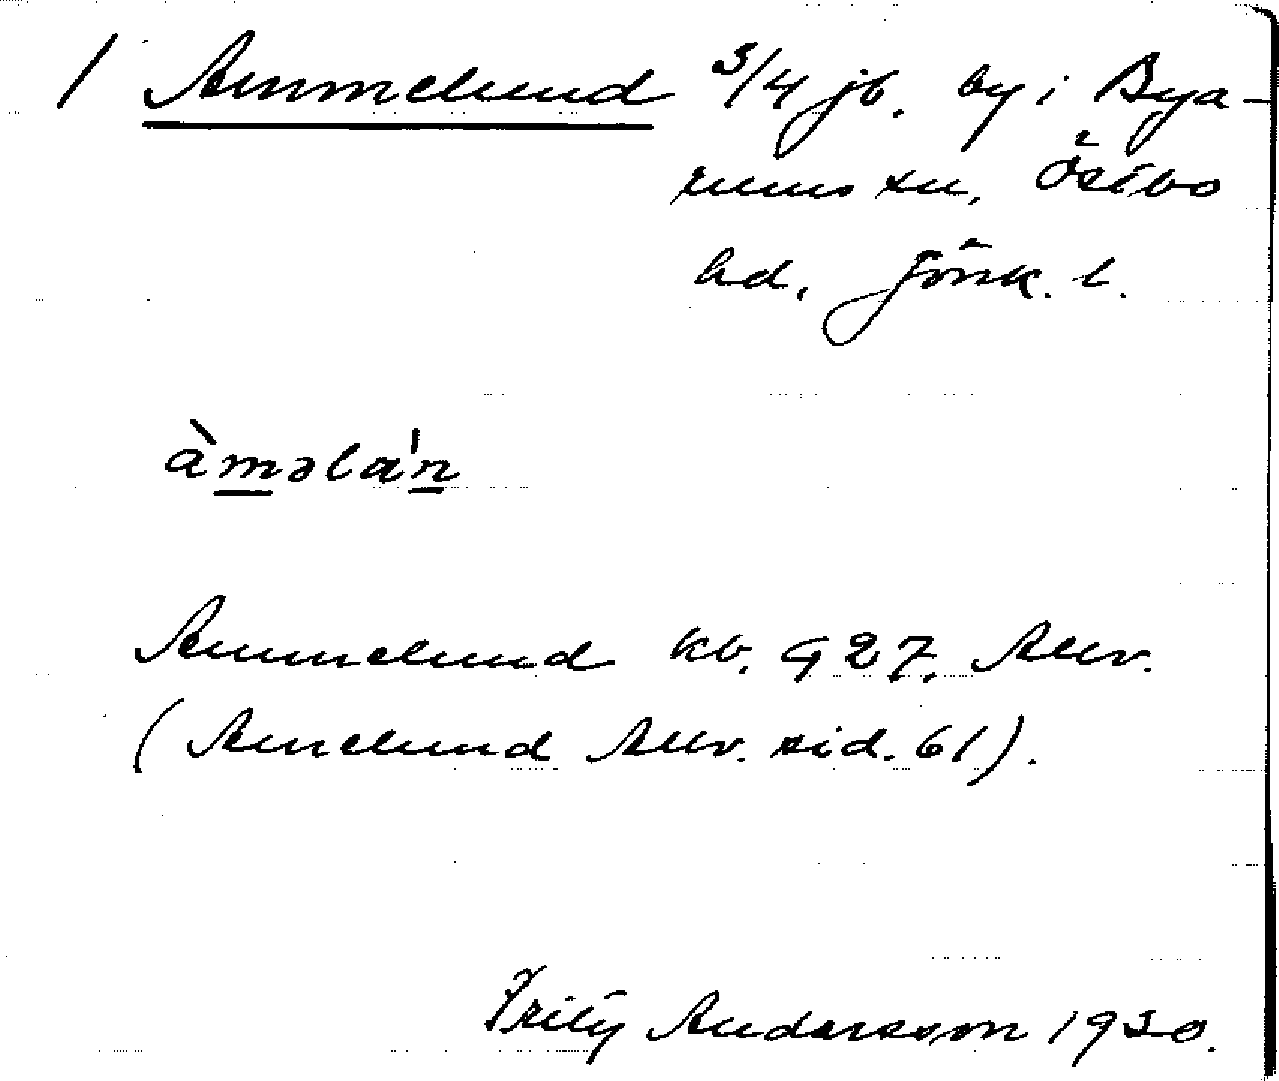 / Ammelund 3/4 jb. by i Bya-
rums sn, Östbo
hd, Jönk. l.
àməlaˈn
Ammelund kb. 927. Allv.
(Amelund Allv. sid. 61).
Fritz Andersson 1930.